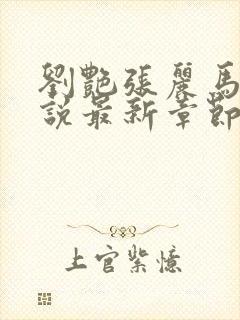 劉艷張麗馬
說最新章節
上官紫憶